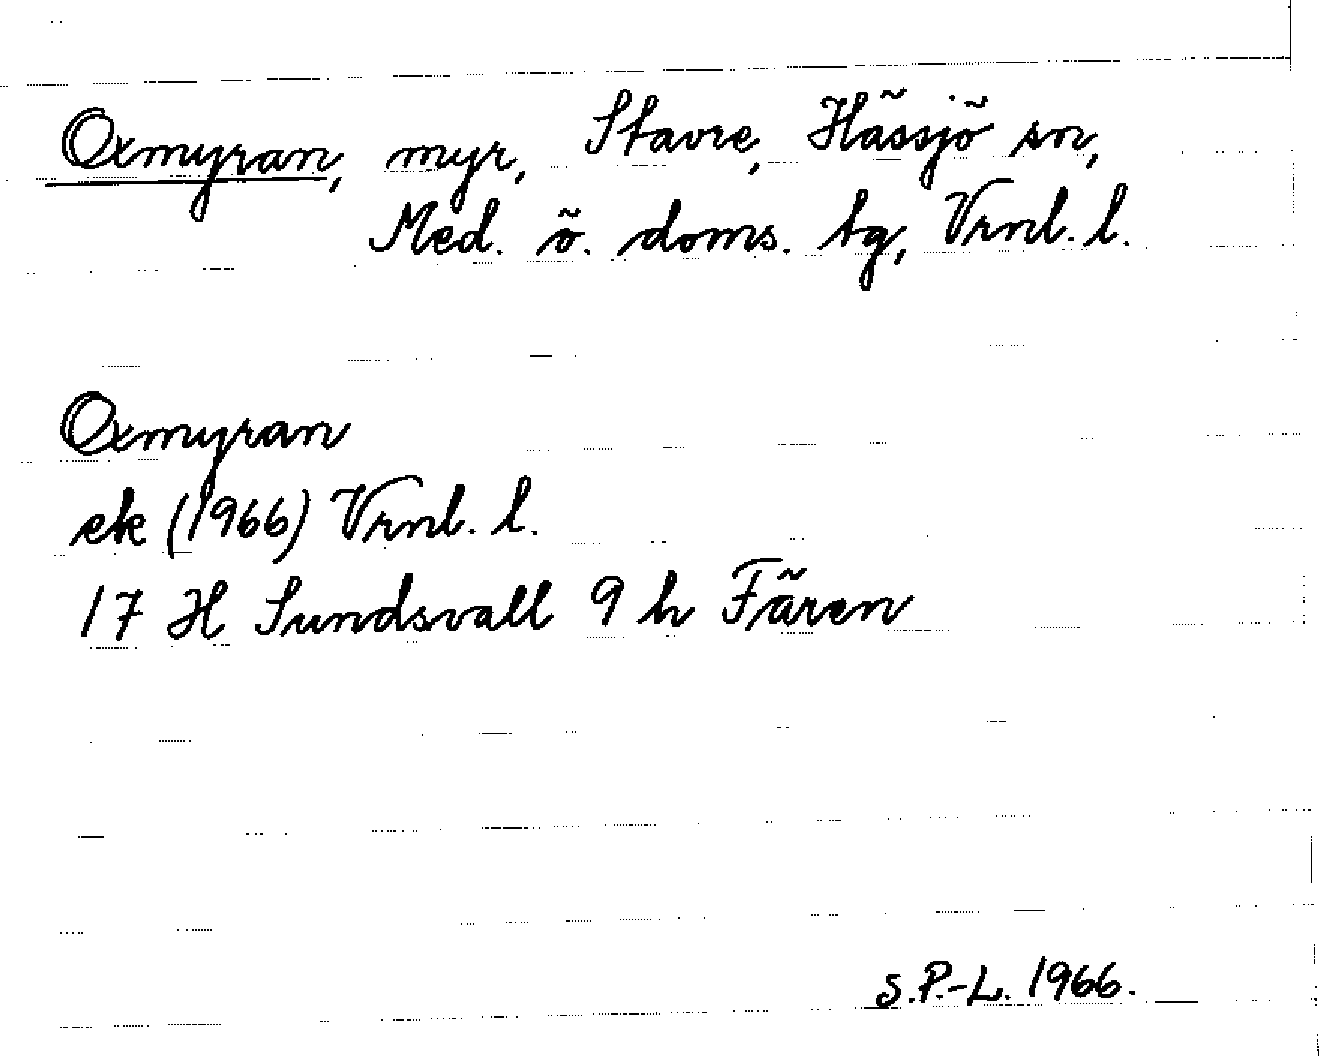 Oxmyran, myr, Stavre, Hässjö sn,
Med. ö. doms. tg, Vrnl. l.
Oxmyran
ek (1966) Vrnl. l.
17 H Sundsvall 9 h Fären
S.P.-L. 1966.